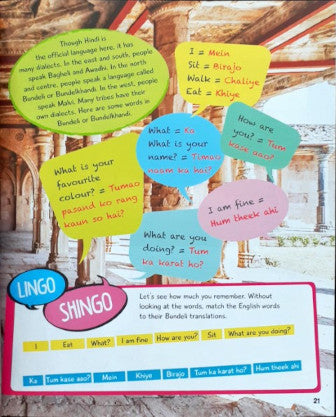 Though Hindi is
the official language here, it has
many dialects. In the east and south, people
speak Bagheli and Awadhi. In the north
and centre, people speak a language called
Bundeli or Bundelkhandi. In the west, people
speak Malvi. Many tribes have their
own dialects. Here are some words in
Bundeli or Bundelkhandi.
I = Mein
Sit = Birajo
Walk = Chaliye
Eat = Khiye
What = Ka
What is your
name? = Timau
naam ka hai?
How are
you? = Tum
kase aao?
What is your
favourite
colour? = Tumao
pasand ko rang
kaun so hai?
I am fine =
Hum theek ahi
What are you
doing? = Tum
ka karat ho?
LINGO
SHINGO
Let's see how much you remember. Without
looking at the words, match the English words
to their Bundeli translations.
I Eat What? I am fine How are you? Sit What are you doing?
Ka Tum kase aao? Mein Khiye Birajo Tum ka karat ho? Hum theek ahi
21